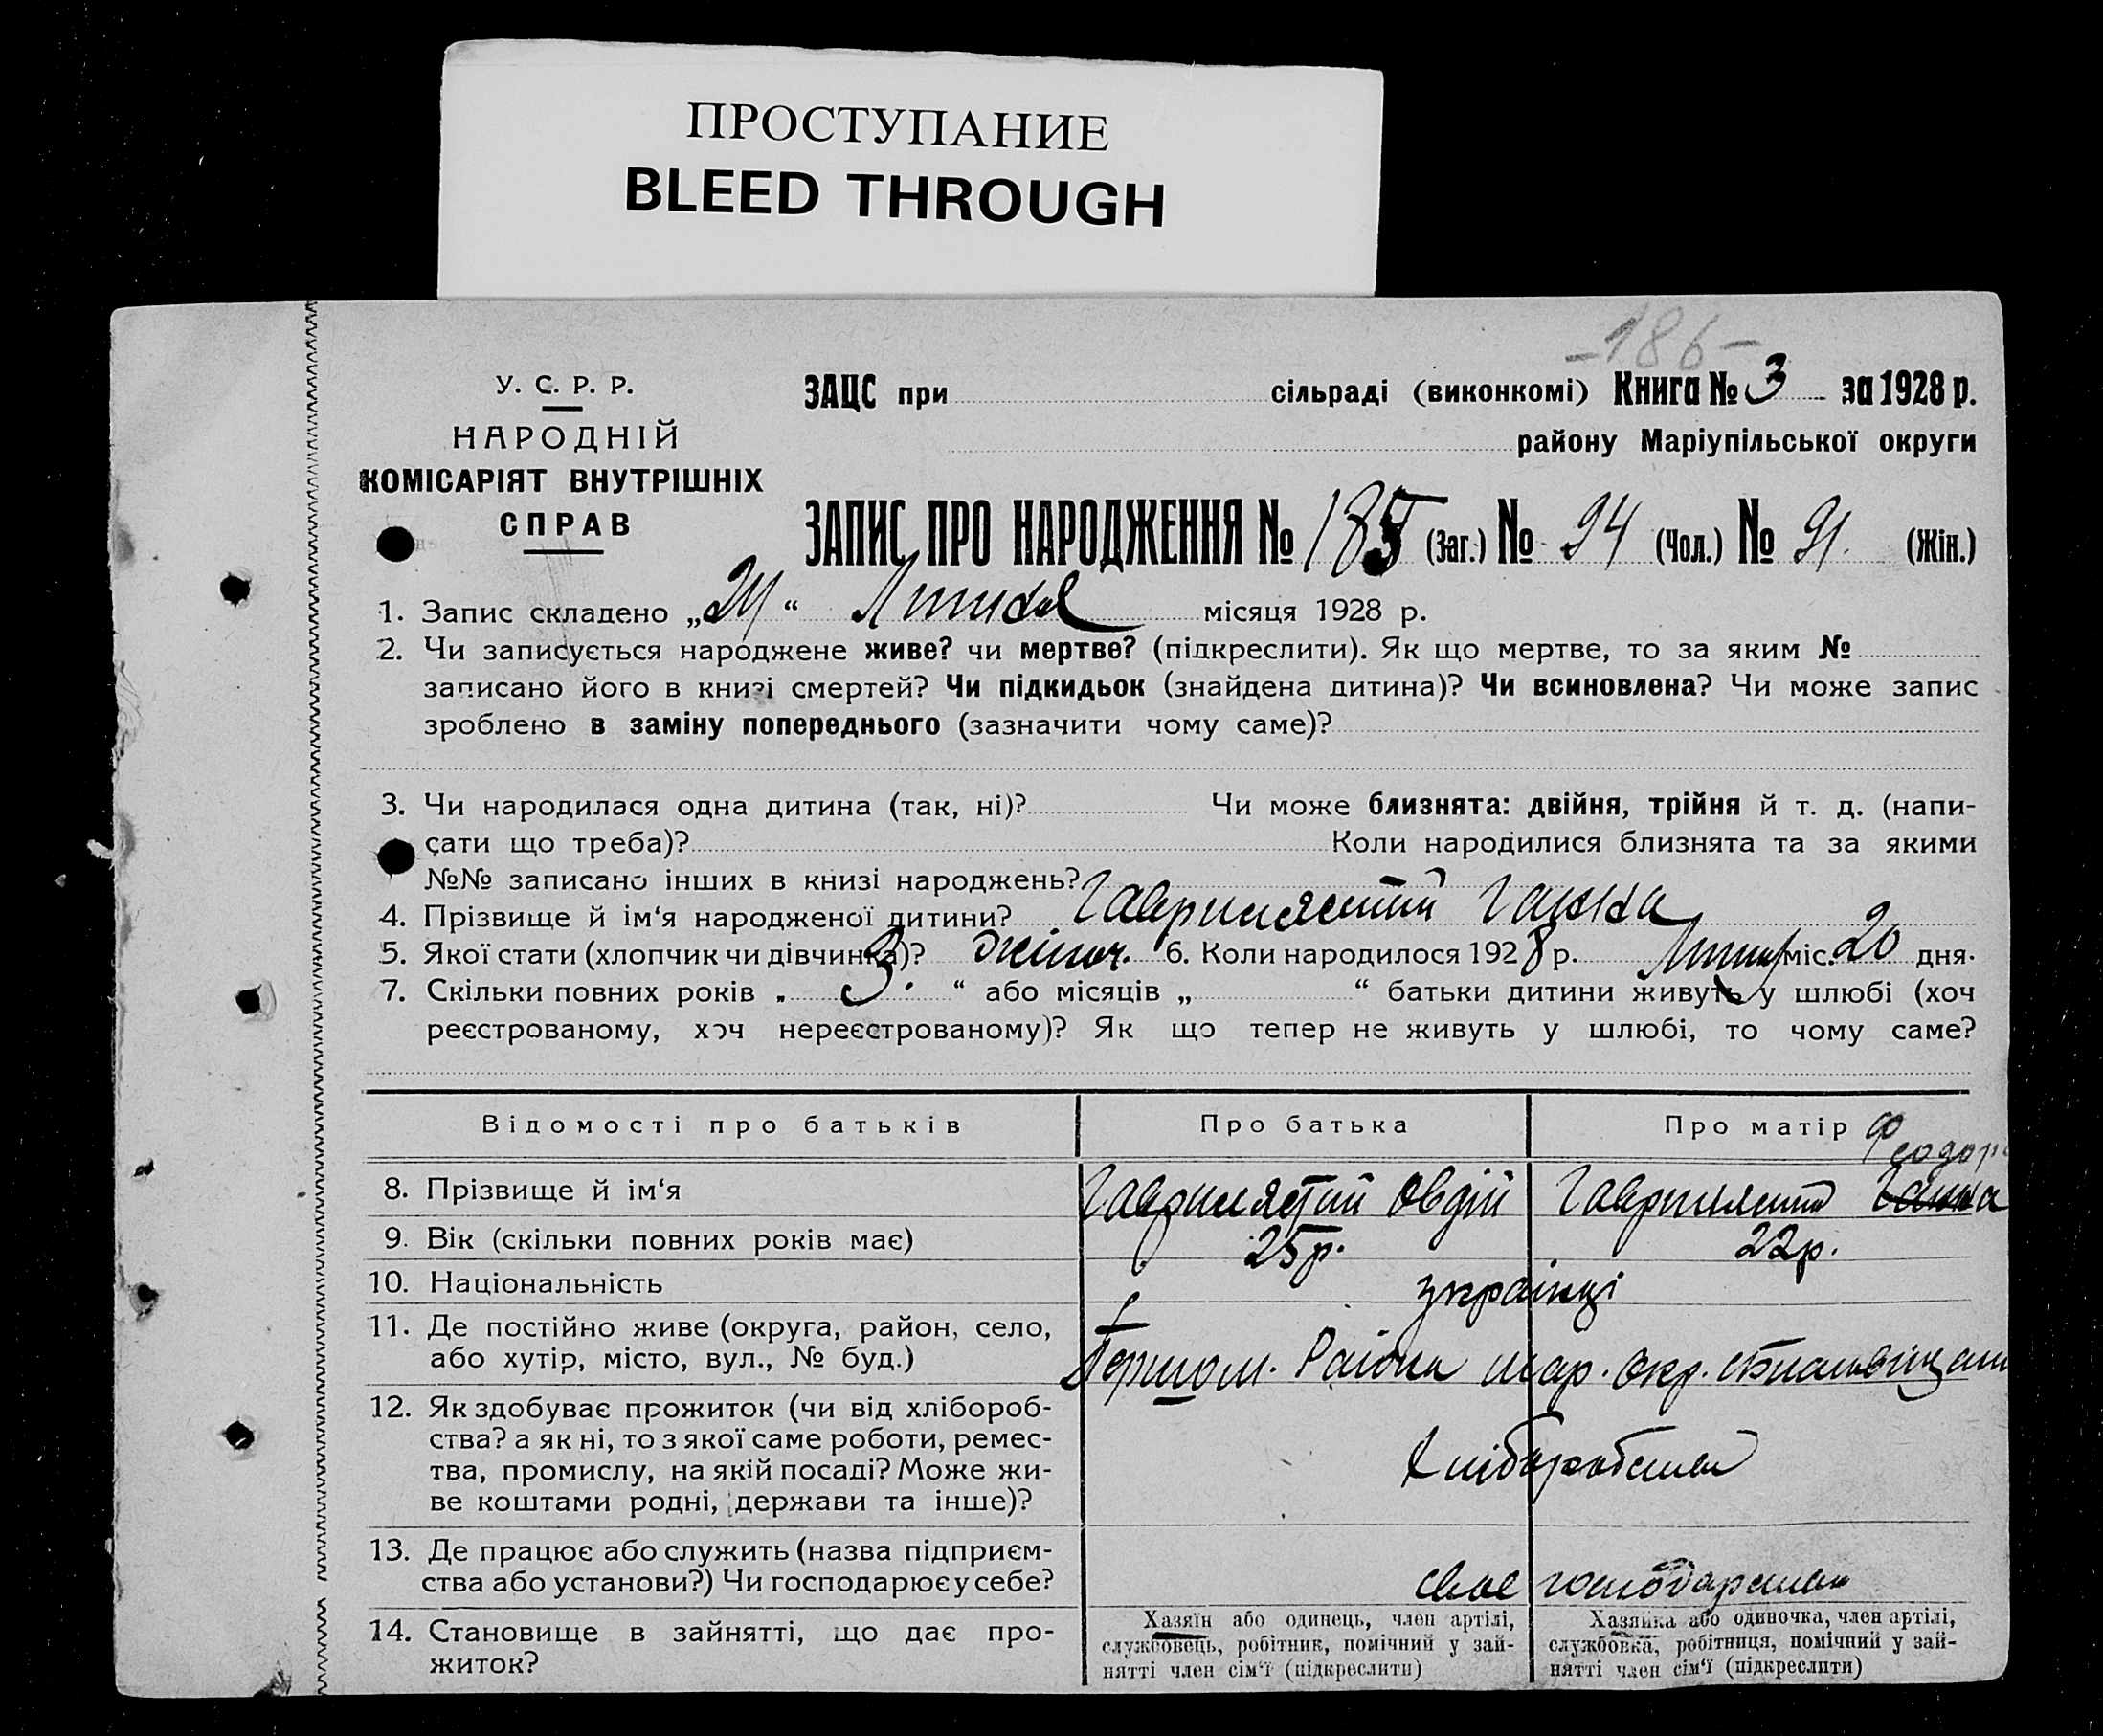 ПРОСТУПАНИЕ
BLEED THROUGH
-186-
У. С. Р. Р.
НАРОДНІЙ
КОМІСАРІЯТ ВНУТРІШНІХ
СПРАВ
ЗАЦС при сільраді (виконкомі) Книга № 3 за 1928 р.
району Маріупільської округи
ЗАПИС ПРО НАРОДЖЕННЯ № 185 (Заг.) № 94 (Чол.) № 91. (Жін.)
1. Запис складено „24“ Липня місяця 1928 р.
2. Чи записується народжене живе? чи мертве? (підкреслити). Як що мертве, то за яким №
записано його в книзі смертей? Чи підкидьок (знайдена дитина)? Чи всиновлена? Чи може запис
зроблено в заміну попереднього (зазначити чому саме)?
3. Чи народилася одна дитина (так, ні)? Чи може близнята: двійня, трійня й т. д. (напи-
сати що треба)? Коли народилися близнята та за якими
№№ записано інших в книзі народжень?
4. Прізвище й ім‘я народженої дитини? Гаврилястий Ганна
5. Якої стати (хлопчик чи дівчинка)? жіноч. 6. Коли народилося 1928 р. Липня міс. 20 дня.
7. Скільки повних років „ 3. “ або місяців „ “ батьки дитини живуть у шлюбі (хоч
реєстрованому, хоч нереєстрованому)? Як що тепер не живуть у шлюбі, то чому саме?
Відомості про батьків Про батька Про матір
Феодор
8. Прізвище й ім‘я Гаврилястий Овдій Гавриляст Ганна
9. Вік (скільки повних років має) 25 р. 22 р.
10. Національність українці
11. Де постійно живе (округа, район, село,
або хутір, місто, вул., № буд.) Район мар. окр.
12. Як здобуває прожиток (чи від хлібороб-
ства? а як ні, то з якої саме роботи, ремес-
тва, промислу, на якій посаді? Може жи-
ве коштами родні, держави та інше)? Хліборобства
13. Де працює або служить (назва підприєм-
ства або установи?) Чи господарює у себе? своє господарство
14. Становище в зайнятті, що дає про-
житок?
Хазяїн або одинець, член артілі,
службовець, робітник, помічний у зай-
нятті член сім‘ї (підкреслити)
Хазяйка або одиночка, член артілі,
службовка, робітниця, помічний у зай-
нятті член сім‘ї (підкреслити)